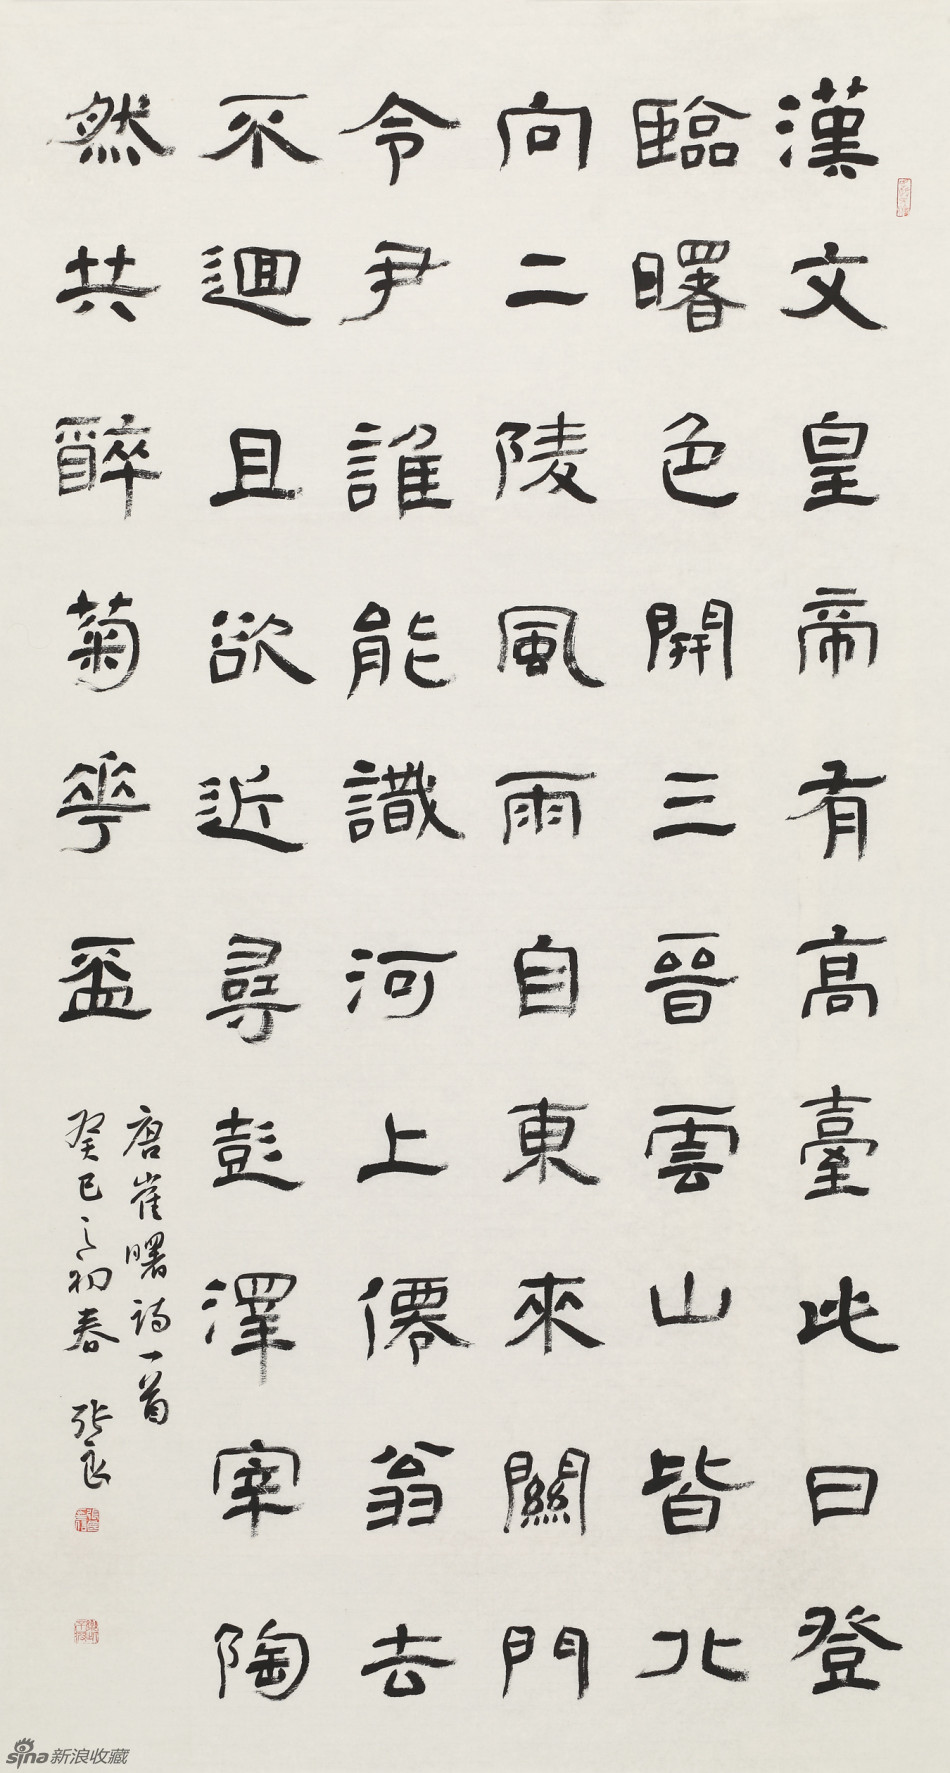 漢文皇帝有高臺此日登
臨曙色開三晉雲山皆北
向二陵風雨自東來關門
令尹誰能識河上僊翁去
不迴且欲近尋彭澤宰陶
然共醉菊花盃
唐崔曙詩一首
癸巳之初春 張良
sina新浪收藏